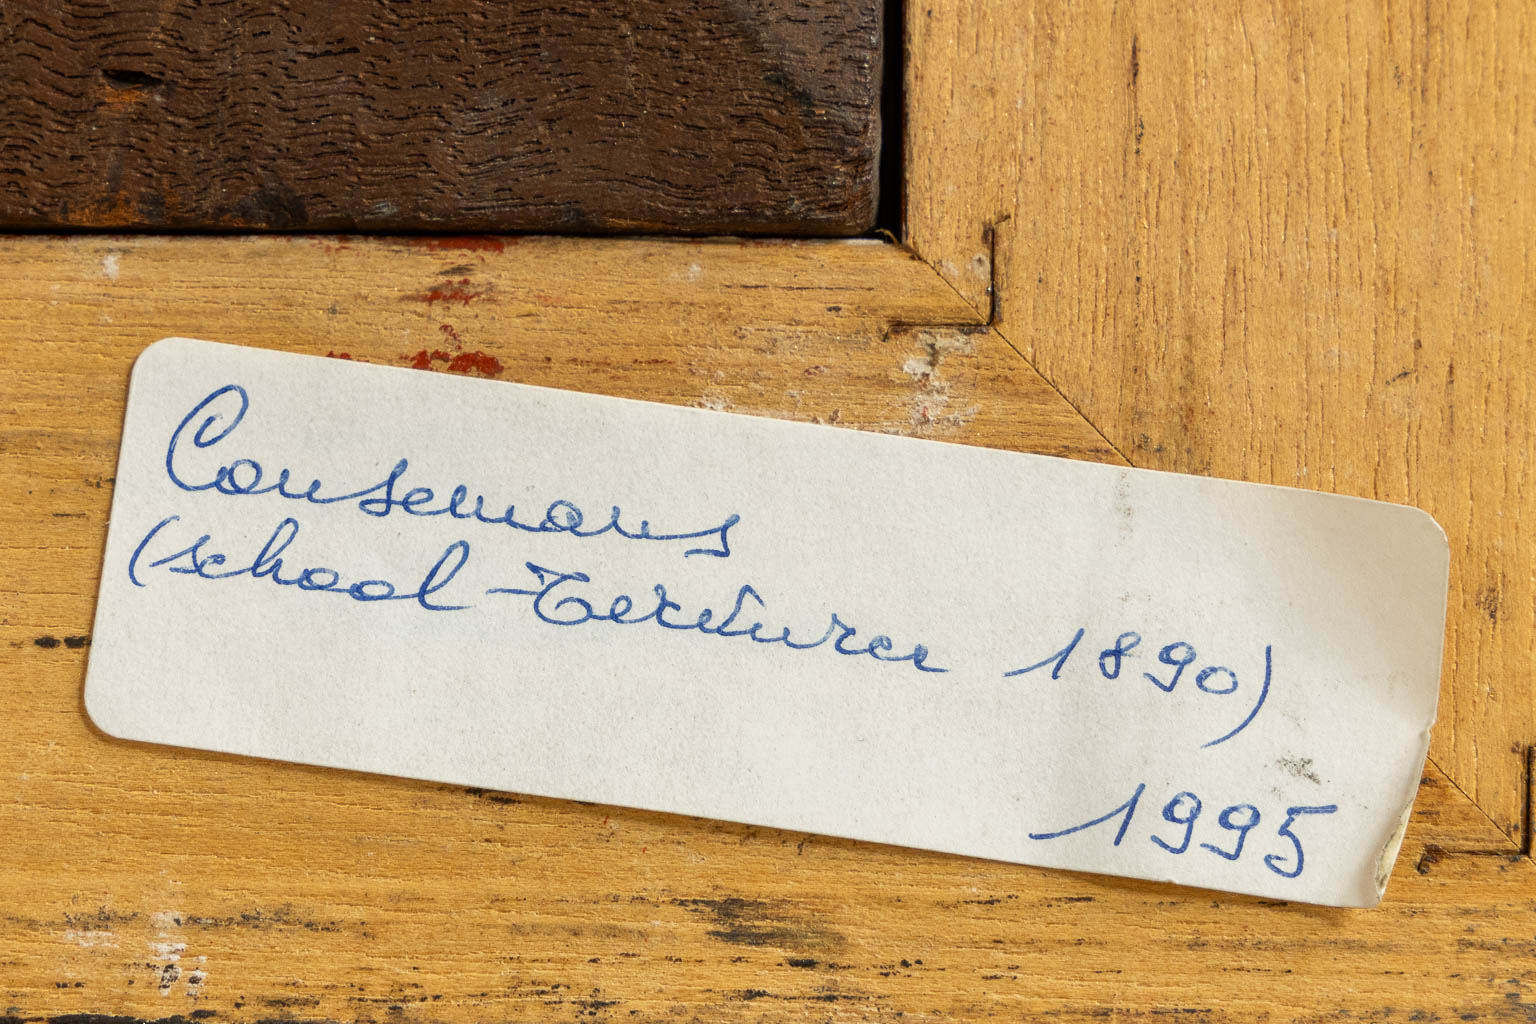 Cousemans
(school - Tervuren 1890)
1995